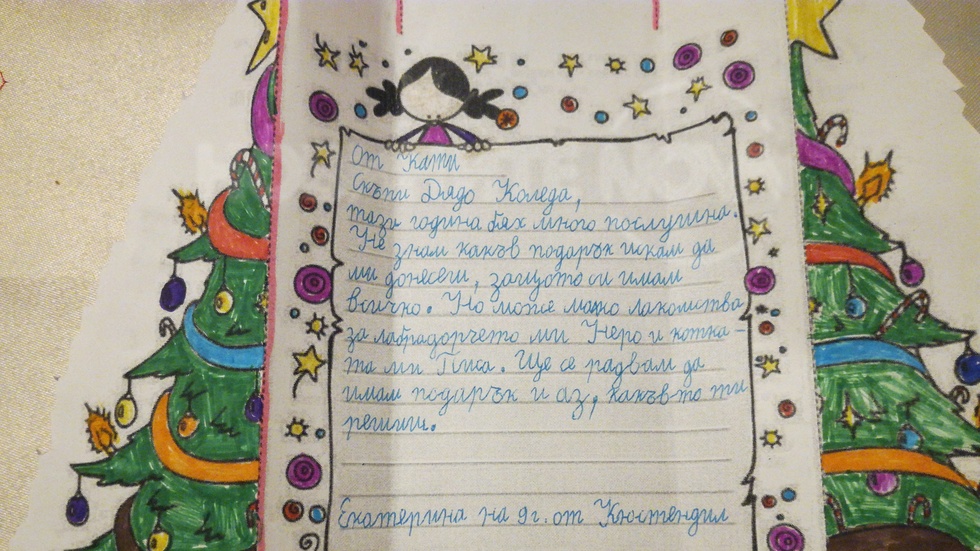 От Кати
Скъпи Дядо Коледа,
тази година бях много послушна.
Не знам какъв подарък искам да
ми донесеш, защото си имам
всичко. Но може малко лакомства
за лабрадорчето ми Неро и котка-
та ми Пика. Ще се радвам да
имам подарък и аз, какъв-то ти
решиш.
Екатерина на 9г. от Кюстендил